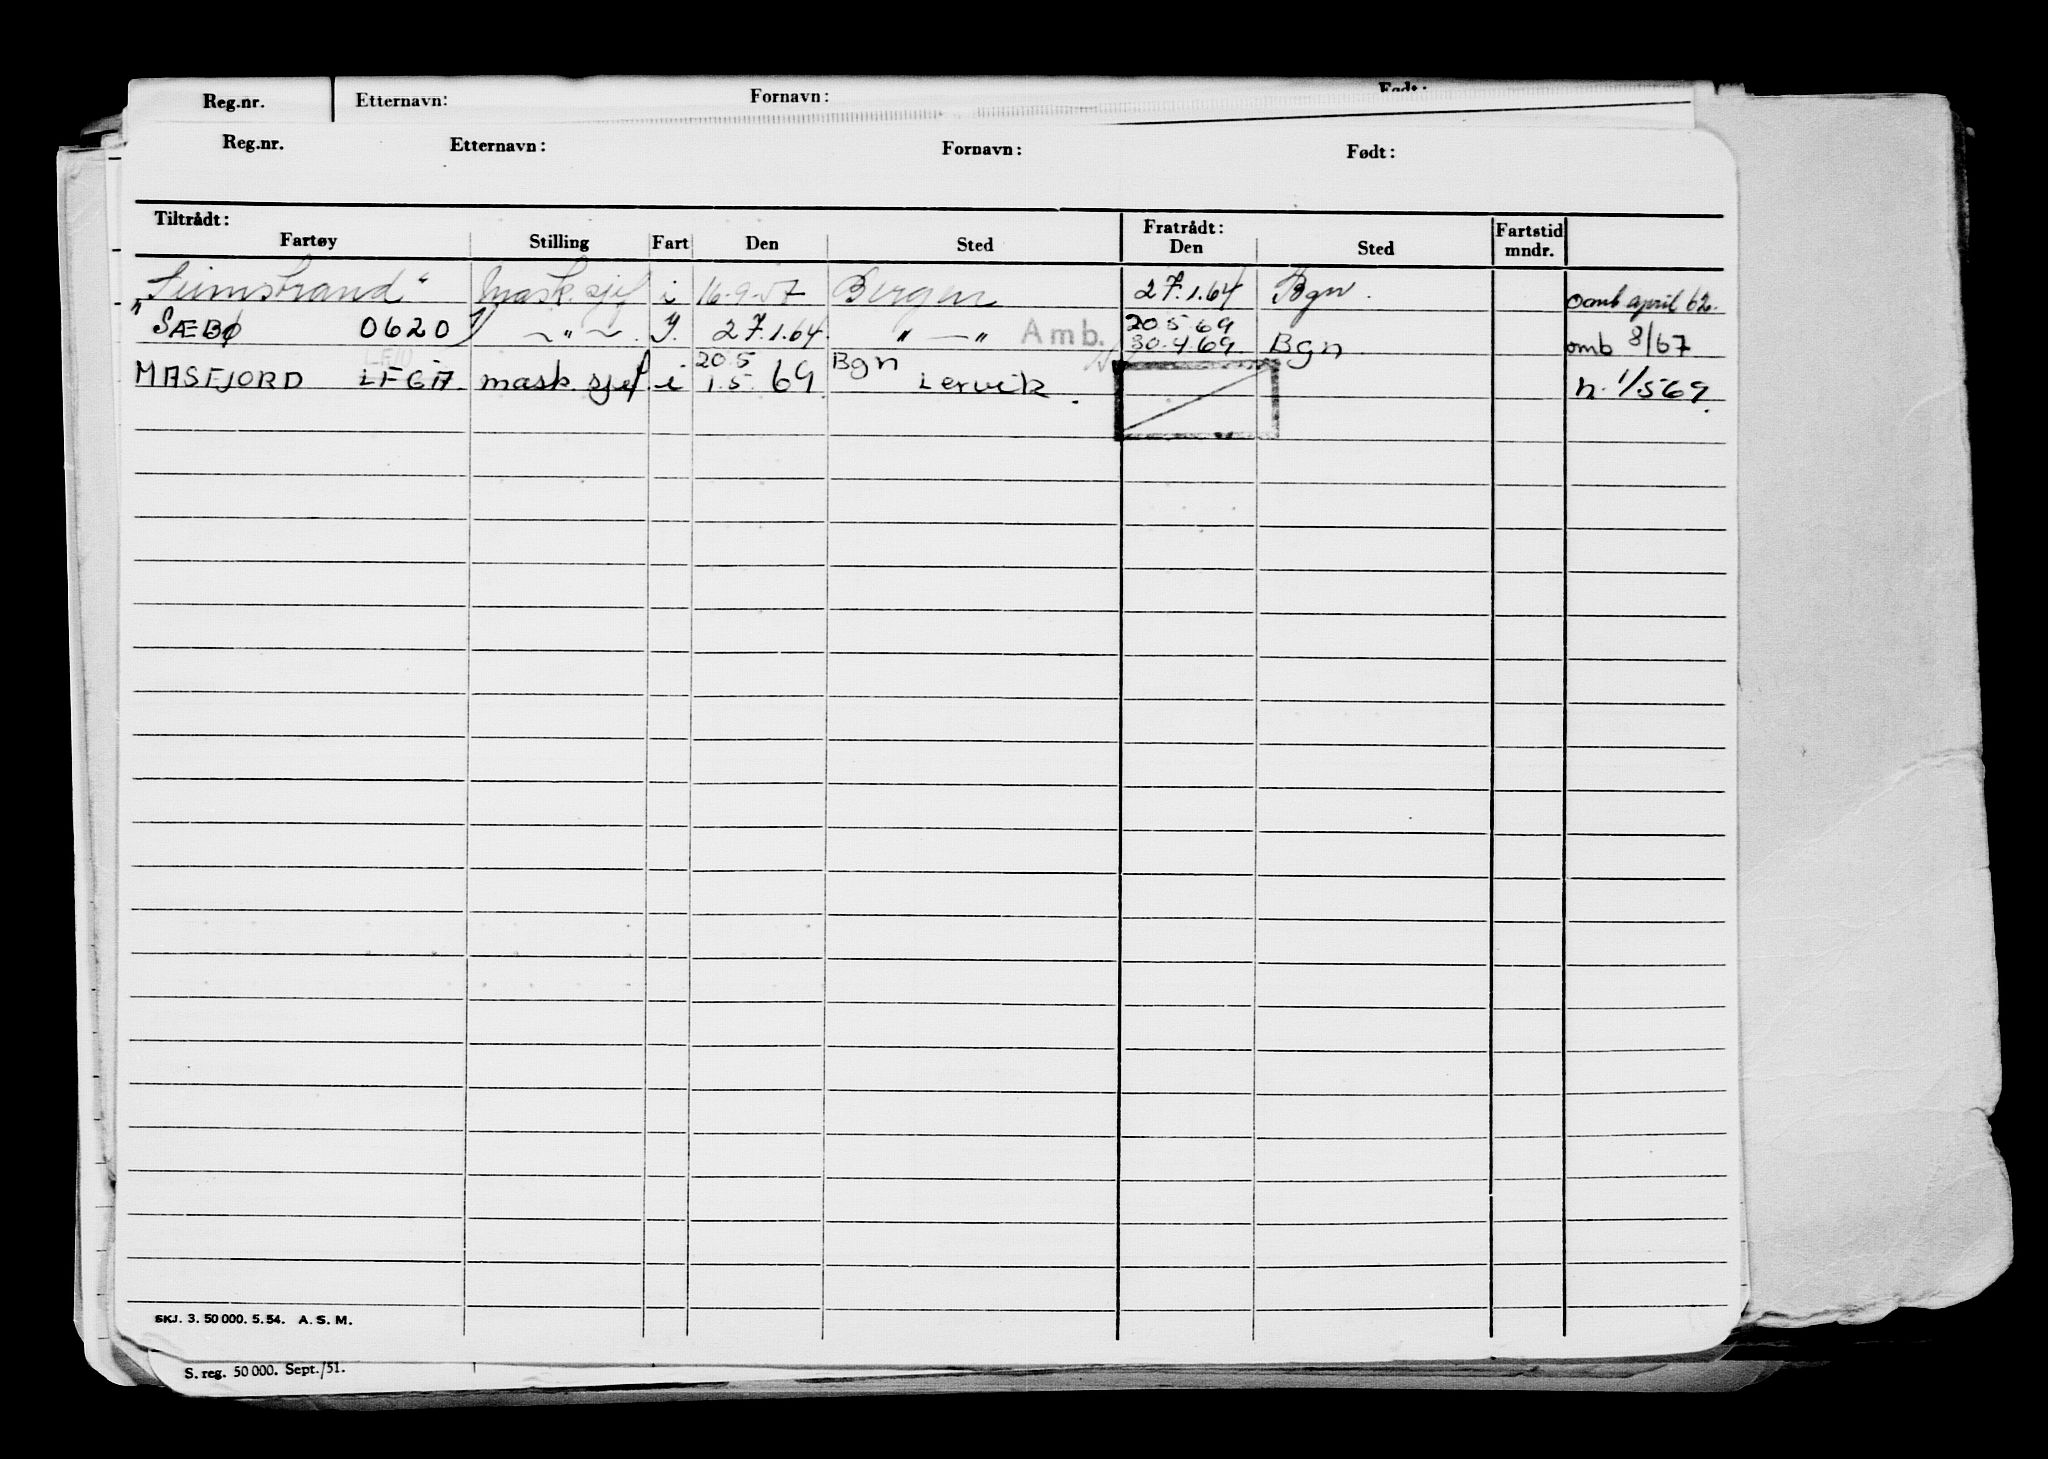 Reg.nr. Etternavn: Fornavn: Født:
Reg.nr. Etternavn: Fornavn: Født:
Tiltrådt: Fratrådt: Fartstid
Fartøy Stilling Fart Den Sted Den Sted mndr.
"Seimstrand" Mask. sjef i 16-9-57 Bergen 27.1.64 Bgn. omb april 62.
"SÆBØ 0620 — " — I. 27.1.64 " — " Amb. 20.5.69
30.4.69 Bgn omb 8/67
20.5 Bgn
MASFJORD LFGA mask. sjef i 1.5. 69 Lervik. n. 1/5 69.
SKJ. 3. 50 000. 5. 54. A. S. M.
S. reg. 50 000. Sept./51.